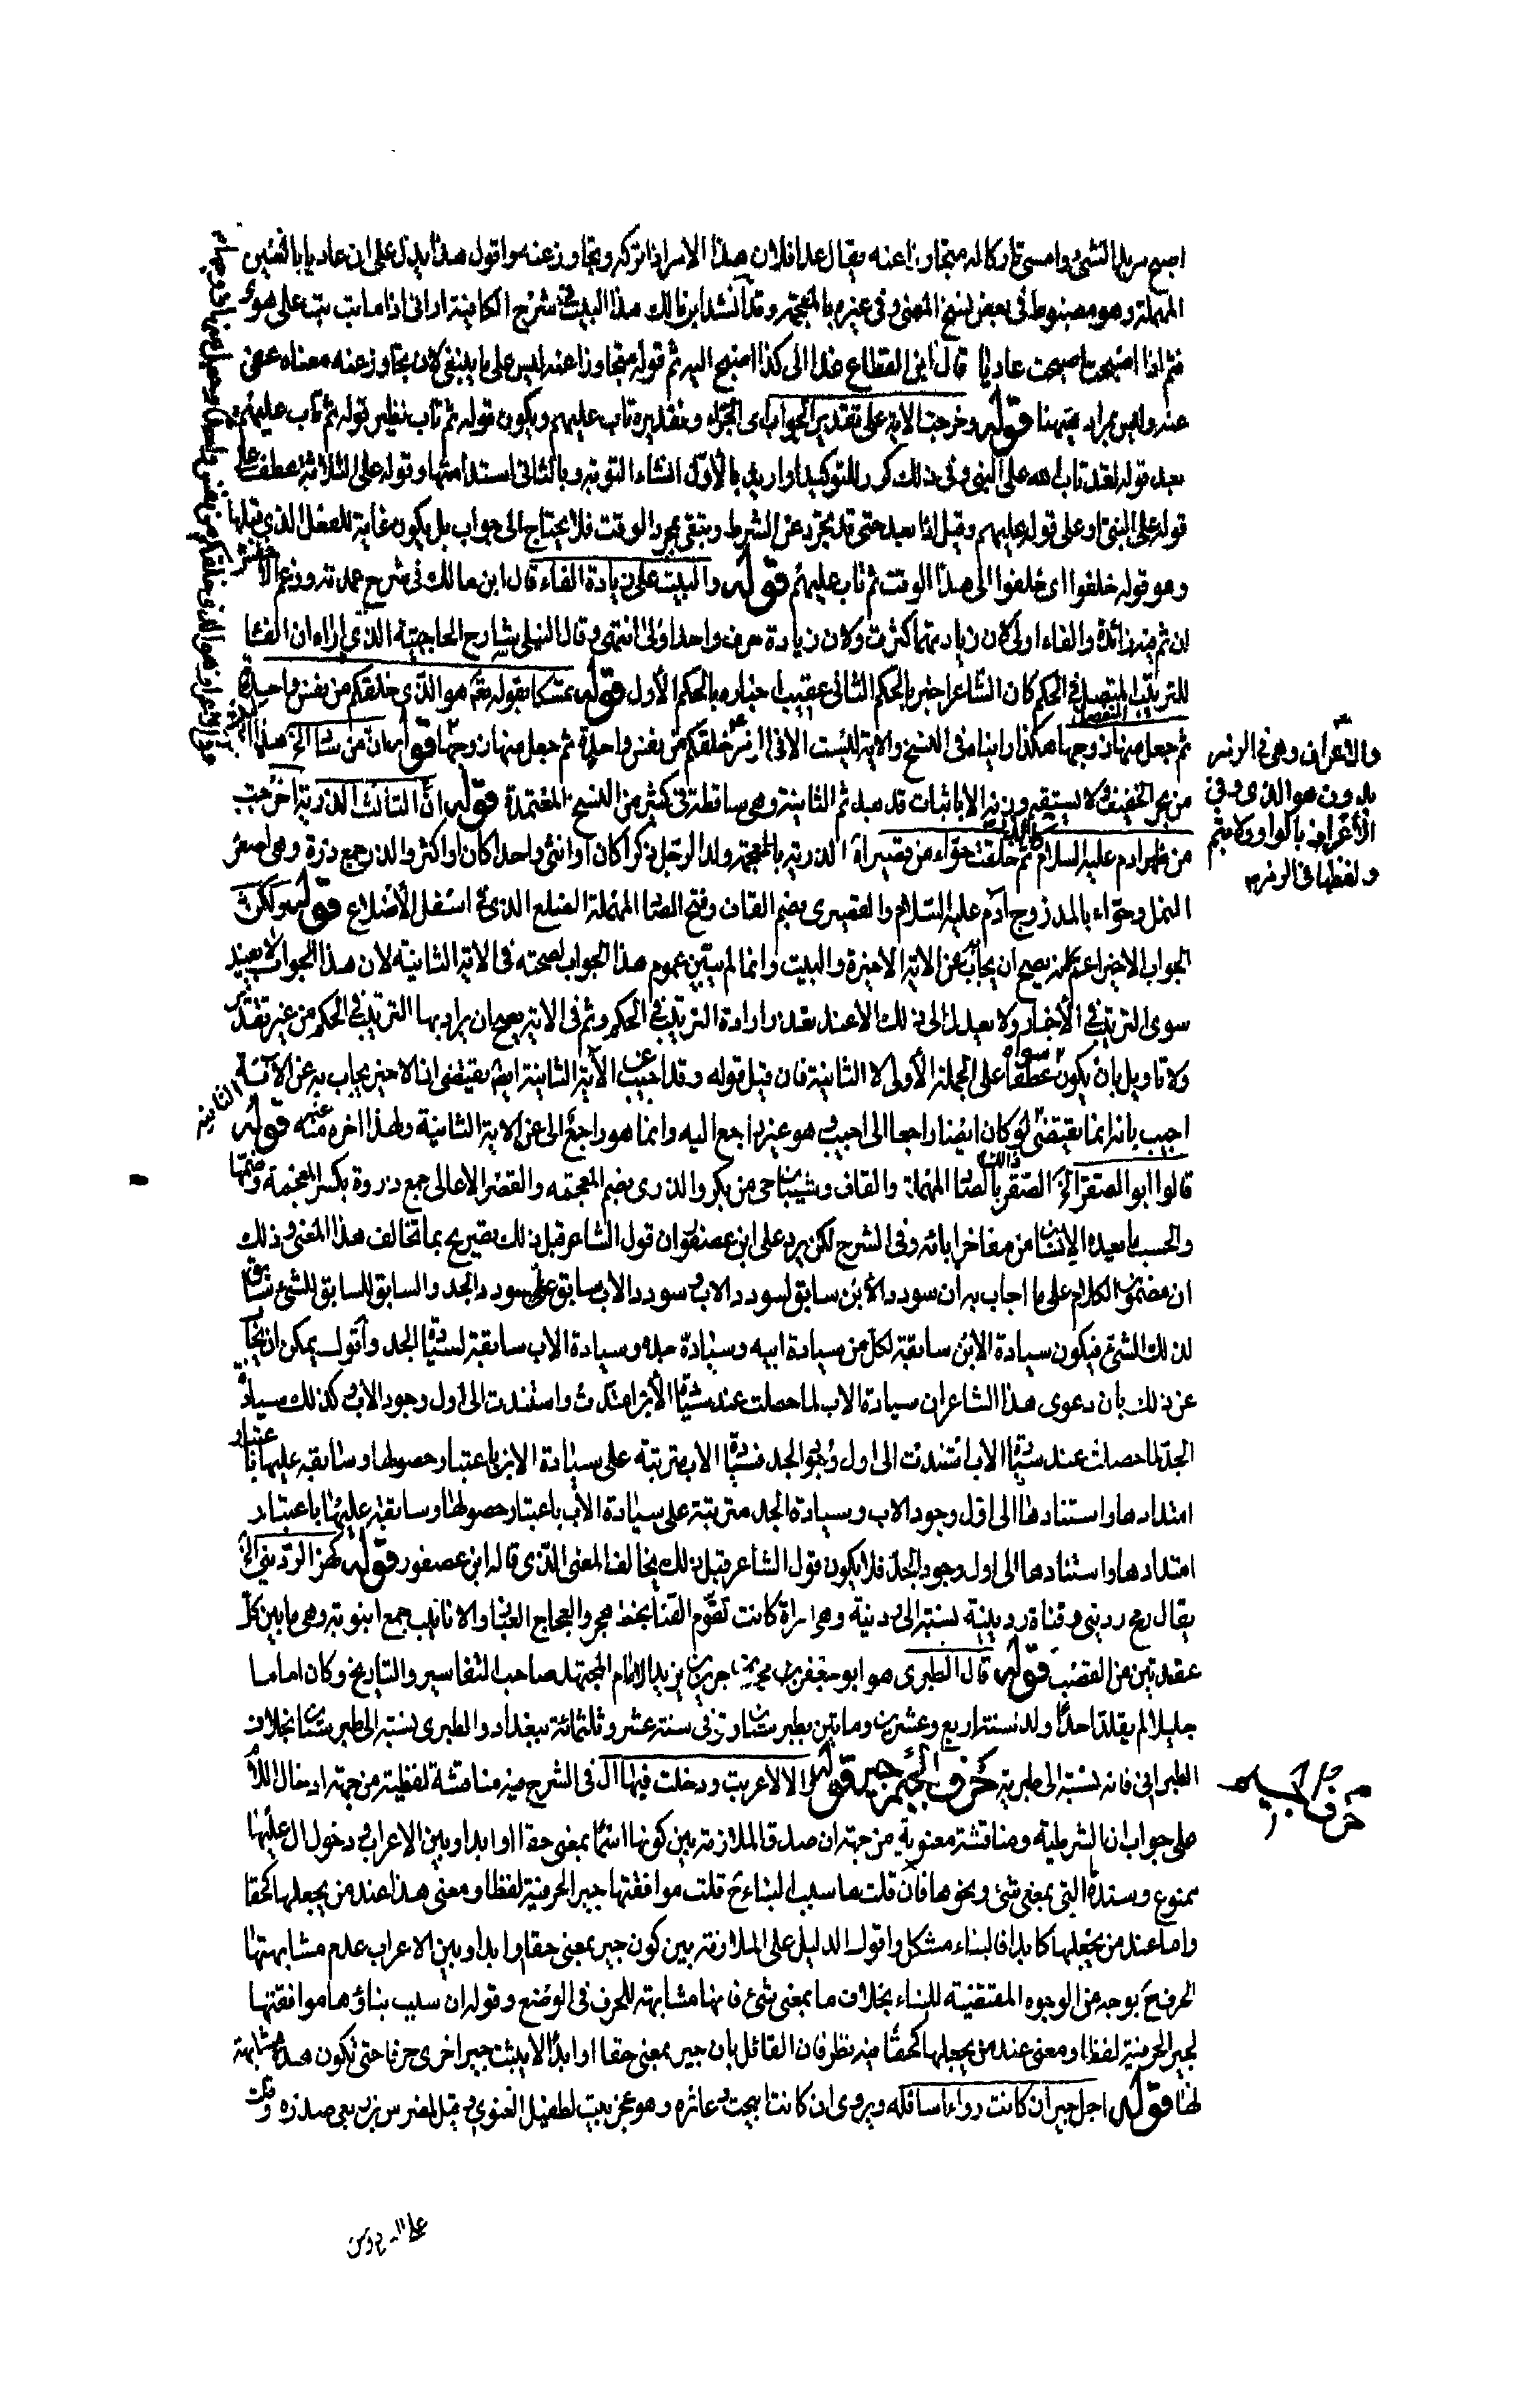 اصبح مريدا لشئ وامسى تاركا له متجاوزا عنه يقال عدا فلان هذا الامر اذا تركه وتجاوز عنه واقول هذا يدل على ان عاديا بالعين
المهملة وهو مضبوط فى بعض نسخ المغنى وفى غيره بالمعجمة وقد انشد ابن مالك هذا البيت فى شرح الكافية ارانى اذا ما بت بت على هوى
فثم اذا اصبحت اصبحت عاديا قال ابن القطاع غدا الى كذا اصبح اليه ثم قوله متجاوزا عنه ليس على ما ينبغى لان تجاوز عنه معناه عفى
عنه وليس مراد ههنا قوله وخرجت الاية على تقدير الجواب اى الجزاء وتقديره تاب عليهم ويكون قوله ثم تاب نظير قوله ثم تاب عليهم
بعد قوله لقد تاب الله على النبى وفى ذلك كرر للتوكيد او اريد بالأول انشاء التوبة وبالثانى استدامتها وقوله على الثلاثة عطف على
قوله على النبى او على قوله عليهم وقيل اذا بعد حتى قد تجرد عن الشرط وتبقى لمجرد الوقت فلا يحتاج الى جواب بل يكون غاية للفعل الذى قبلها
وهو قوله خلفوا اى خلفوا الى هذا الوقت ثم تاب عليهم قوله والبيت على زيادة الفاء قال ابن مالك فى شرح عمدته وزعم الأخفش
ان ثم فيه زائدة والفاء اولى لان زيادتها كثرت ولان زيادة حرف واحد اولى انتهى وقال النيلى شارح الحاجبية الذى اراه ان الفاء
للترتيب المتصل فى الحكم كان الشاعر اخبر بالحكم الثانى عقيب اخباره بالحكم الأول قوله تمسكا بقوله تعالى هو الذى خلقكم من نفس واحدة
ثم جعل منها زوجها هكذا رايناه فى النسخ والاية ليست الا فى الزمر خلقكم من نفس واحدة ثم جعل منها زوجها قوله ان من ساد الخ هذا البيت
من بحر الخفيف ولا يستقيم وزنه الا باثبات قد بعد ثم الثانية وهى ساقطة فى كثير من النسخ المعتمدة قوله ان الثالث الذرية اخرجت
من ظهر ادم عليه السلام ثم خلقت حواء من قصيراه الذرية بالمعجمة ولد الرجل ذكرا كان او انثى واحدا كان او اكثر والذر جمع ذرة وهى اصغر
النمل وحواء بالمد زوج آدم عليه السلام والقصيرى بضم القاف وفتح الصاد المهملة الضلع الذى فى اسفل الأضلاع قوله ولكن
الجواب الاخير اعم لانه يصح ان يجاب به عن الاية الاخيرة والبيت وانما لم يبين عموم هذا الجواب لصحته فى الاية الثانية لان هذا الجواب لا يفيد
سوى الترتيب فى الأخبار ولا يعدل الى ذلك الا عند تعذر ارادة الترتيب فى الحكم وثم فى الاية يصح ان يراد بها الترتيب فى الحكم من غير تقدير
ولا تاويل بان يكون سواه عطفا على الجملة الأولى لا الثانية فان قيل قوله وقد اجيب عن الآية الثانية ايضا يقتضى ان الاخير يجاب به عن الآية الثانية
اجيب بانه انما يقتضى لو كان ايضا راجعا الى اجيب وهو غير راجع اليه وانما هو راجع الى عن الاية الثانية ولهذا اخره عنه قوله
قالوا ابو الصقر الخ الصقر بالصاد المهملة والقاف وشيبان حى من بكر والذرى بضم المعجمة والقصر الاعالى جمع ذروة بكسر المعجمة وضمها
والحسب ما يعده الانسان من مفاخر ابائه وفى الشرح لكن يرد على ابن عصفور ان قول الشاعر قبل ذلك تصريح بما تخالف هذا المعنى وذلك
ان مضمون الكلام على ما اجاب به ان سودد الابن سابق لسودد الاب وسودد الاب سابق على سودد الجد والسابق للسابق للشئ سابق
لذلك الشئ فيكون سيادة الابن سابقة لكل من سيادة ابيه وسيادة جده وسيادة الاب سابقة لسيادة الجد واقول يمكن ان يجاب
عن ذلك بان دعوى هذا الشاعر ان سيادة الاب لما حصلت عند سيادة الأبن امتدت واستندت الى اول وجود الأب وكذلك سيادة
الجد لما حصلت عند سيادة الاب استندت الى اول وجود الجد فسيادة الاب مترتبة على سيادة الابن باعتبار حصولها وسابقة عليها باعتبار
امتدادها واستنادها الى اول وجود الاب وسيادة الجد مترتبة على سيادة الأب باعتبار حصولها وسابقة عليها باعتبار
امتدادها واستنادها الى اول وجود الجد فلا يكون قول الشاعر قبل ذلك يخالف المعنى الذى قاله ابن عصفور قوله كهز الردينى الخ
يقال رمح ردينى وقناة ردينية نسبة الى ردينة وهى امراة كانت تقوم القنا بخط هجر والعجاج الغبار والانابيب جمع انبوبة وهى ما بين كل
عقدتين من القصب قوله قال الطبرى هو ابو جعفر محمد بن جرير بن يزيد الامام المجتهد صاحب التفاسير والتاريخ وكان اماما
جليلا لم يقلد احدا ولد سنة اربع وعشرين وماتين بطبرستان وتوفى سنة عشر وثلثمائة ببغداد والطبرى نسبة الى طبرستان بخلاف
الطبرانى فانه نسبة الى طبرية حرف الجيم جير قوله والا لاعربت ودخلت فيها ال فى الشرح فيه مناقشة لفظية من جهة ادخال اللام
على جواب ان الشرطية ومناقشة معنوية من جهة ان صدق الملازمة بين كونها اسما بمعنى حقا او ابدا وبين الاعراب ودخول ال عليها
ممنوع وسنده ما التى بمعنى شئ ونحوها فان قلت ما سبب البناء ح قلت موافقتها جير الحرفية لفظا ومعنى هذا عند من يجعلها كحقا
واما عند من يجعلها كابدا فالبناء مشكل واقول الدليل على الملازمة بين كون جير بمعنى حقا او ابدا وبين الاعراب عدم مشابهتها
الحرف ح بوجه من الوجوه المقتضية للبناء بخلاف ما بمعنى شئ فانها مشابهة للحرف فى الوضع وقوله ان سبب بناؤها موافقتها
لجير الحرفية لفظا ومعنى عند من يجعلها كحقا فيه نظر فان القائل بان جير بمعنى حقا او ابدا لا يثبت جير اخرى حرفا حتى تكون هذه مشابهة
لها قوله اجل جير ان كانت رواء اسافله ويروى ان كانت ابيحت دعاثره وهو عجز بيت لطفيل الغنوى وقيل لمضرس بن ربعى صدره وقلن
والاعراف وهى فى الزمر
بدون هو الذى وفى
الأعراف بالواو ولا بثم
ولفظها فى الزمر
حرف الجيم
جير